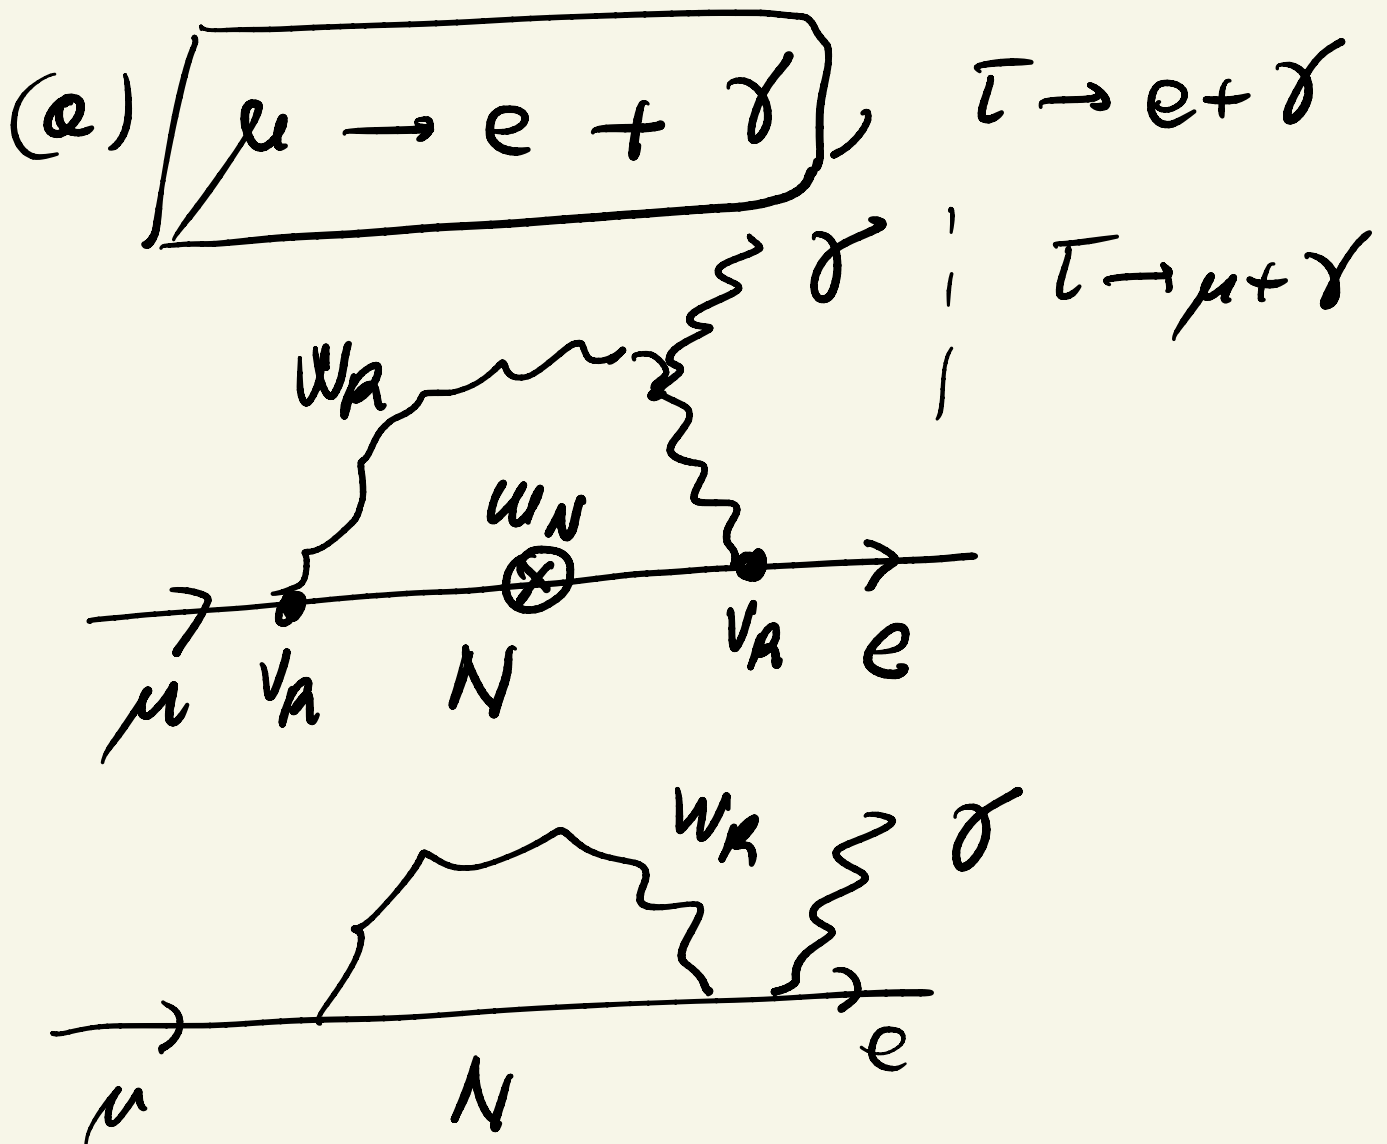 (a) μ → e + γ, τ → e + γ
τ → μ + γ
γ
W_R
m_N
μ V_R N V_R e
W_R γ
μ N e